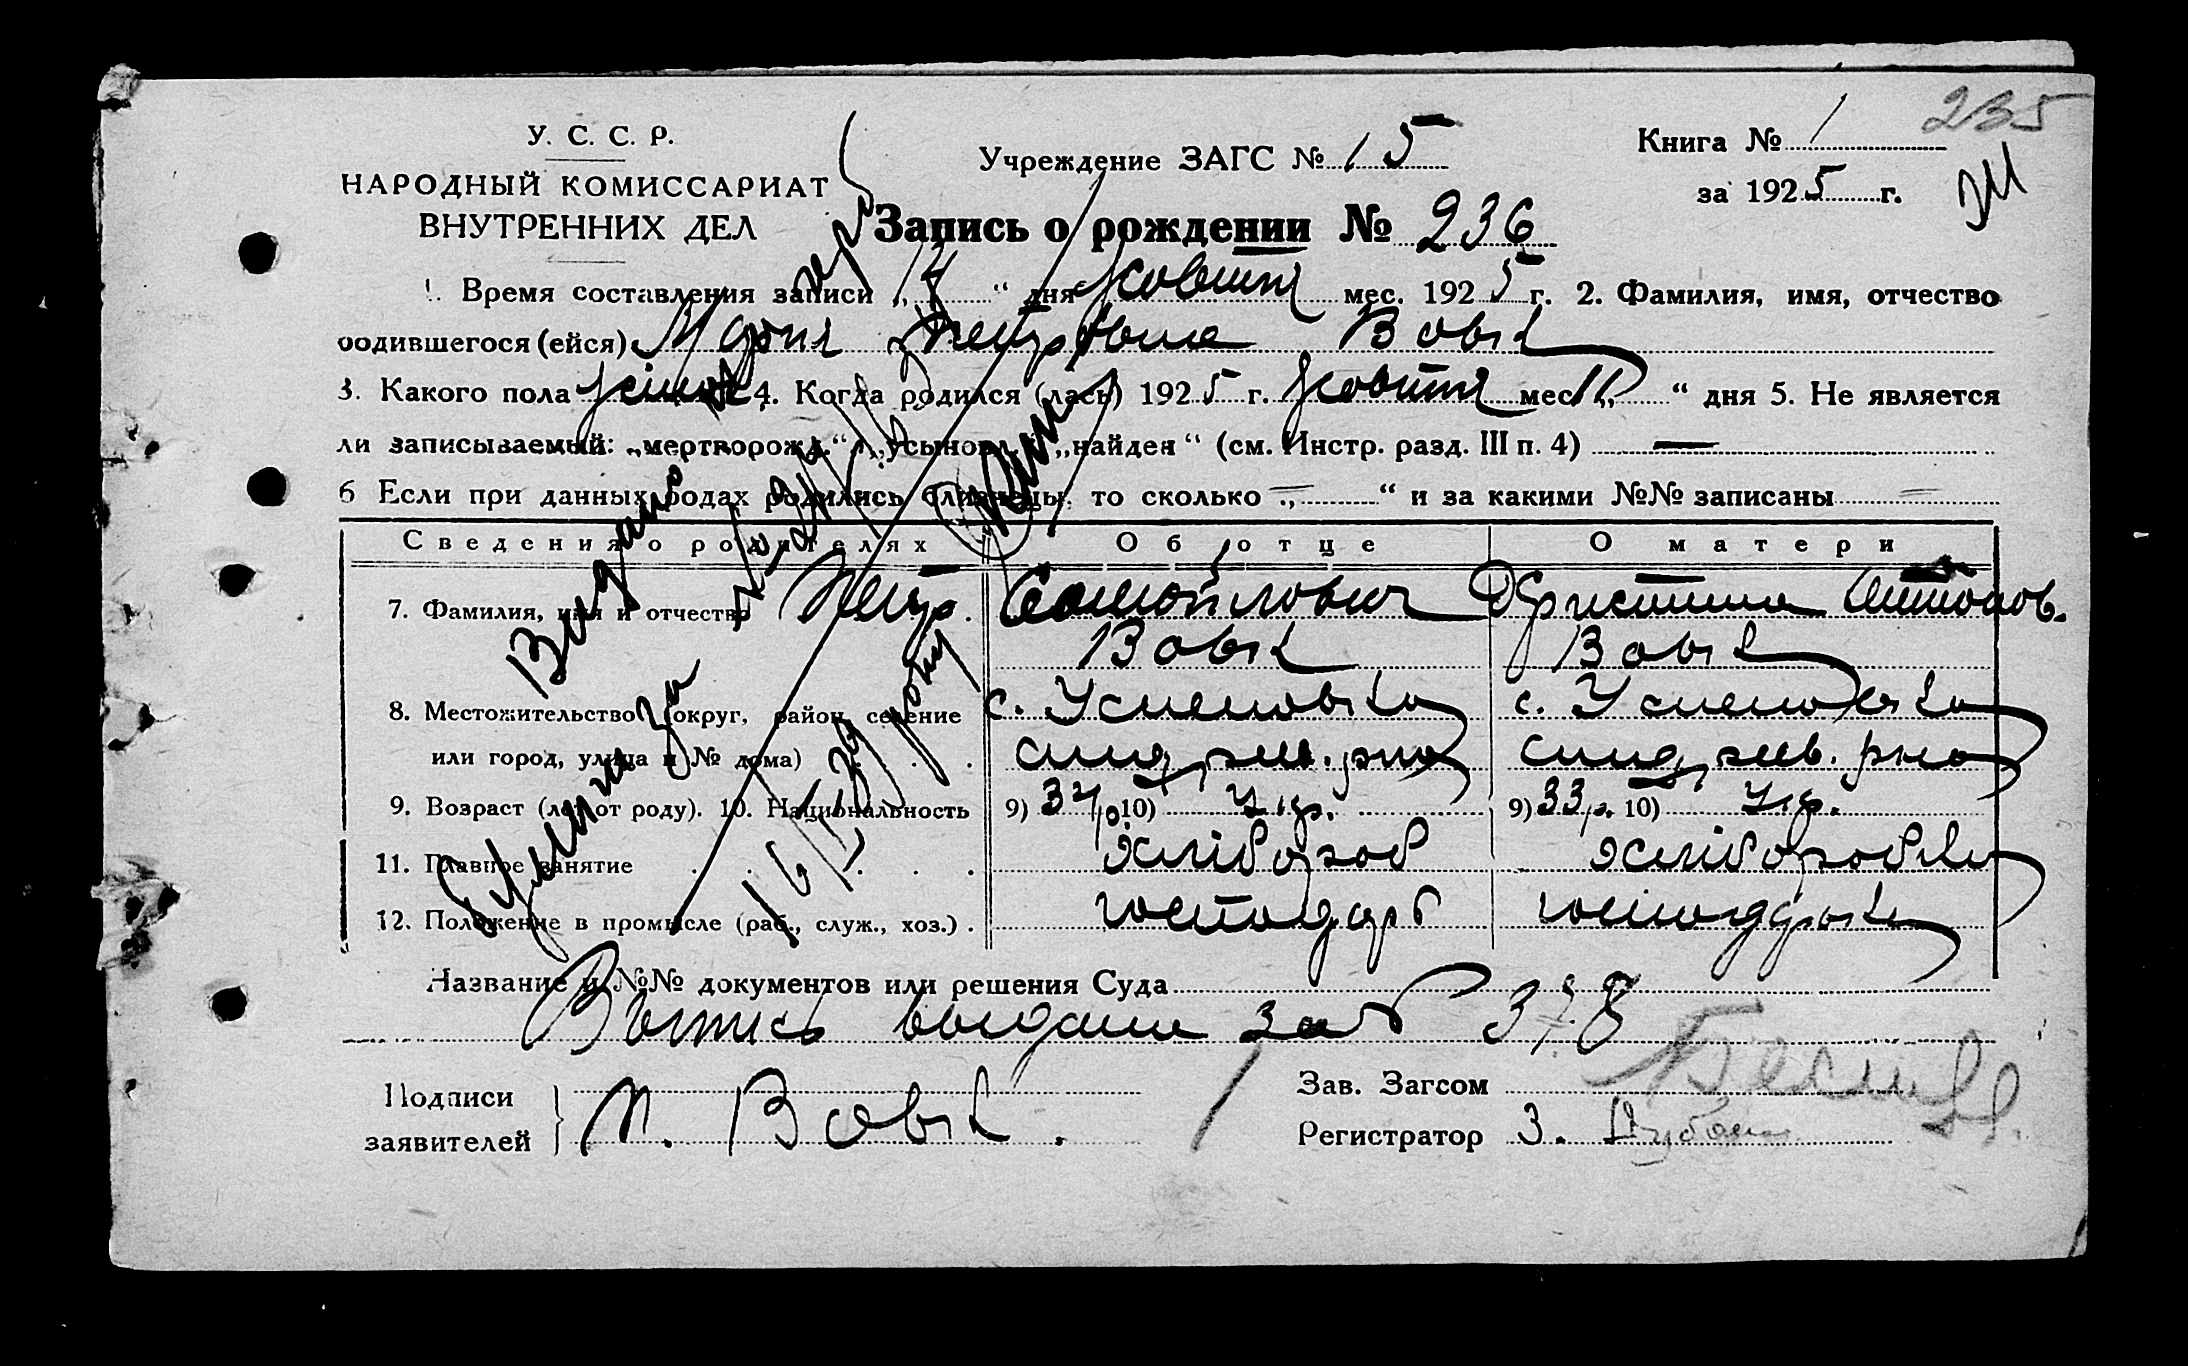 235
У. С. С. Р.
НАРОДНЫЙ КОМИССАРИАТ
ВНУТРЕННИХ ДЕЛ
Учреждение ЗАГС № 15
Книга № 1
за 1925 г.
Запись о рождении № 236
1. Время составления записи „14“ дня Жовтня мес. 1925 г. 2. Фамилия, имя, отчество
родившегося (ейся) Марія Петровна Вовк
3. Какого пола жіноч 4. Когда родился (лась) 1925 г. Жовтня мес. „ “ дня 5. Не является
ли записываемый: „мертворожд.“, „усыновл.“, „найден“ (см. Инстр. разд. III п. 4) —
6 Если при данных родах родились близнецы, то сколько „—“ и за какими №№ записаны —
Сведения о родителях Об отце О матери
7. Фамилия, имя и отчество Петр. Самойлович Христина Антонов.
Вовк Вовк
8. Местожительство (округ, район, селение с. Успеновка с. Успеновка
или город, улица и № дома)
9. Возраст (лет от роду). 10. Национальность 9) 34 р. 10) Укр. 9) 33 р. 10) Укр.
11. Главное занятие хлібороб хліборобка
12. Положение в промысле (раб., служ., хоз.) господарь господарка
Название и №№ документов или решения Суда
Выпись выдана за № 378
Подписи
заявителей П. Вовк.
Зав. Загсом
Регистратор З.
Видано
за
року